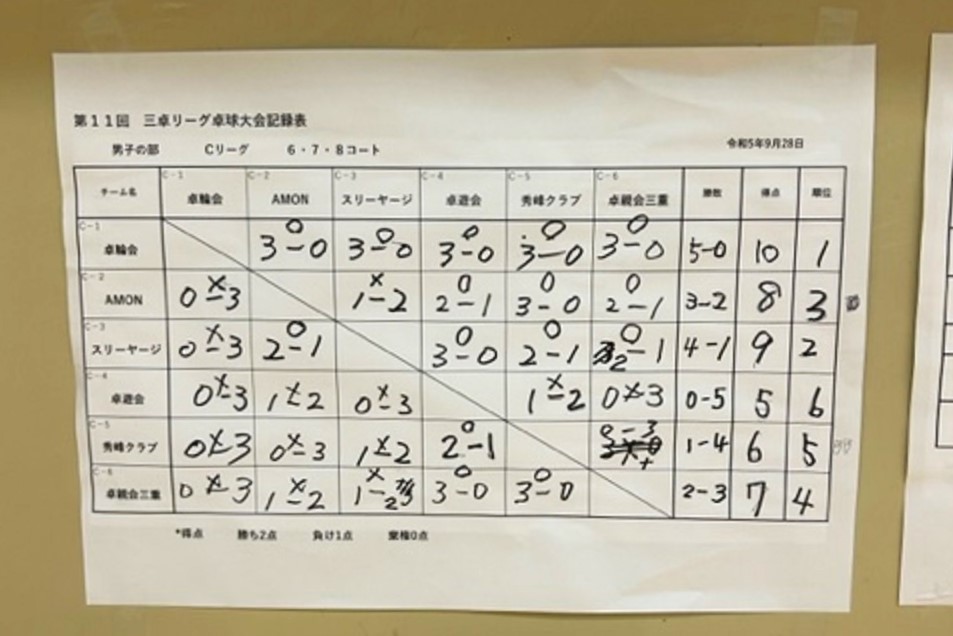 第11回 三卓リーグ卓球大会記録表
男子の部 Cリーグ 6・7・8コート 令和5年9月28日
チーム名 C-1 卓輪会 C-2 AMON C-3 スリーヤージ C-4 卓遊会 C-5 秀峰クラブ C-6 卓親会三重 勝敗 得点 順位
C-1 卓輪会 ○ 3-0 ○ 3-0 ○ 3-0 ○ 3-0 ○ 3-0 5-0 10 1
C-2 AMON × 0-3 × 1-2 ○ 2-1 ○ 3-0 ○ 2-1 3-2 8 3
C-3 スリーヤージ × 0-3 ○ 2-1 ○ 3-0 ○ 2-1 ○ 2-1 4-1 9 2
C-4 卓遊会 × 0-3 × 1-2 × 0-3 × 1-2 0×3 0-5 5 6
C-5 秀峰クラブ × 0-3 × 0-3 × 1-2 ○ 2-1 0-3 1-4 6 5
C-6 卓親会三重 × 0-3 × 1-2 × 1-2 ○ 3-0 ○ 3-0 2-3 7 4
*得点 勝ち2点 負け1点 棄権0点